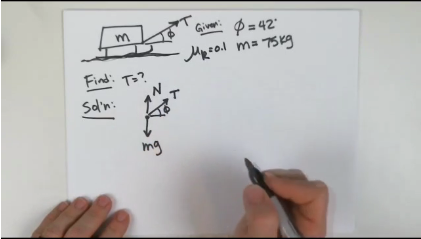 m T Φ Given: Φ = 42°
μk = 0.1 m = 75kg
Find: T = ?
Sol'n: N T Φ
mg